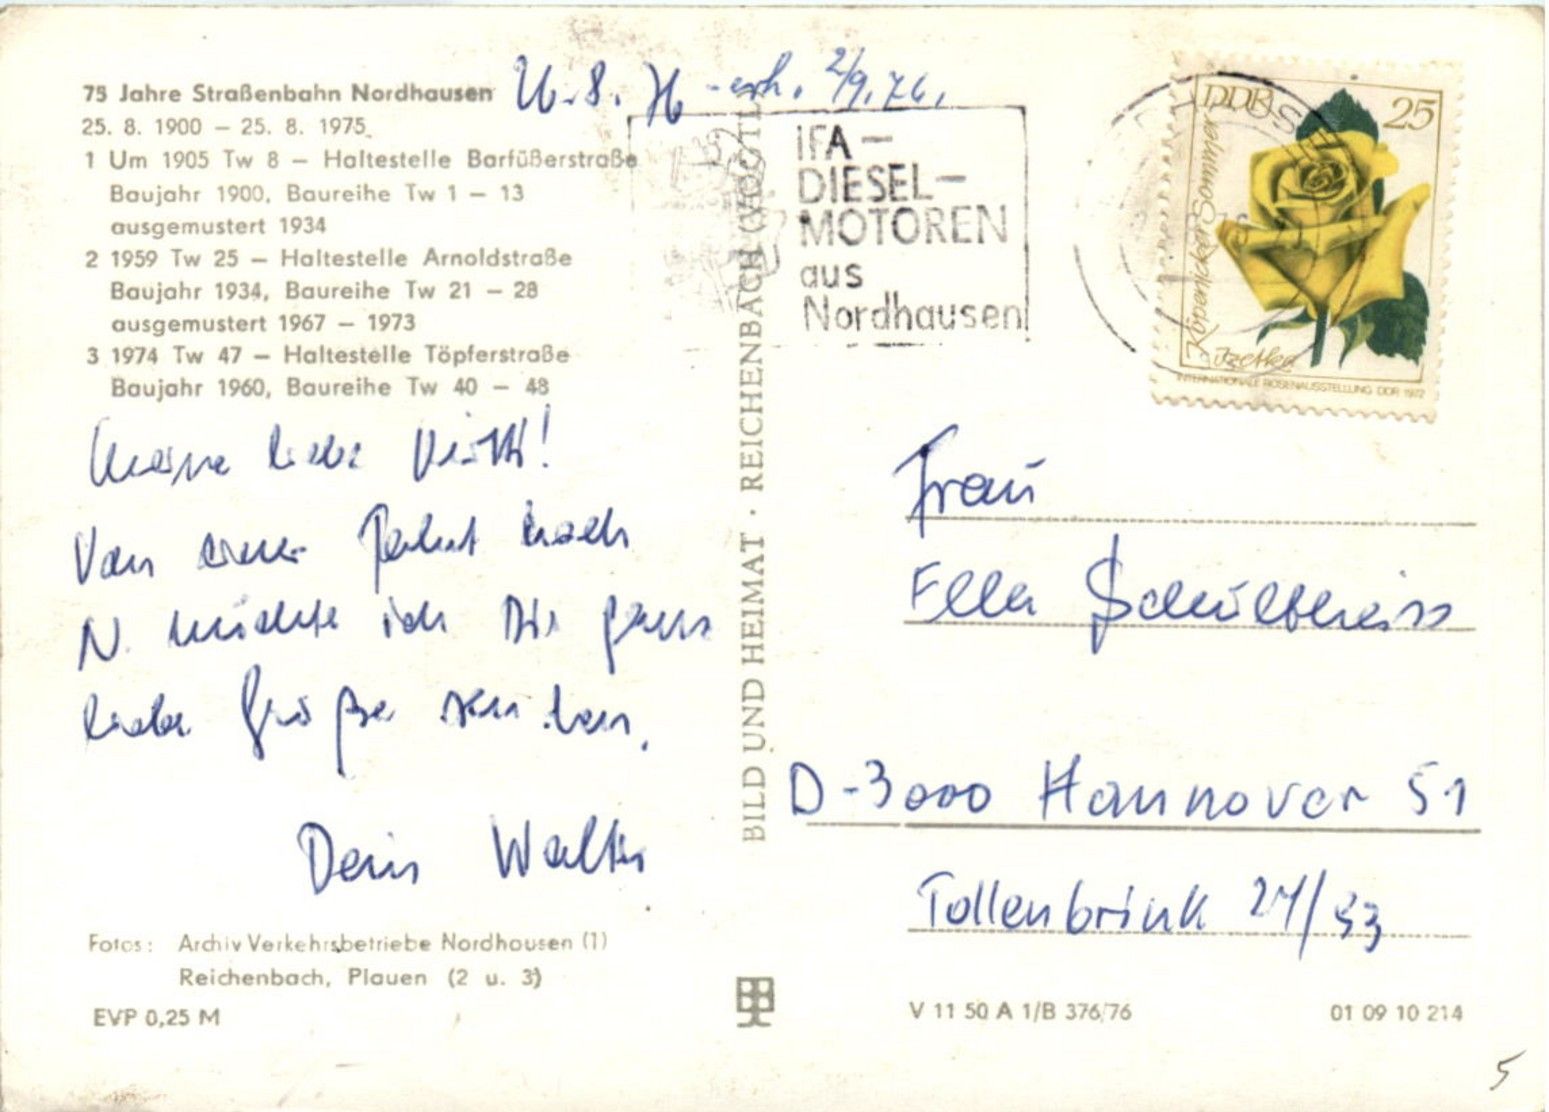 75 Jahre Straßenbahn Nordhausen
25. 8. 1900 – 25. 8. 1975
1 Um 1905 Tw 8 – Haltestelle Barfüßerstraße
Baujahr 1900, Baureihe Tw 1 – 13
ausgemustert 1934
2 1959 Tw 25 – Haltestelle Arnoldstraße
Baujahr 1934, Baureihe Tw 21 – 28
ausgemustert 1967 – 1973
3 1974 Tw 47 – Haltestelle Töpferstraße
Baujahr 1960, Baureihe Tw 40 – 48
26. 8. 76 - erh. 2/9.76.
Meine liebe
Von einer Fahrt nach
N. möchte ich Dir ganz
liebe Grüße senden.
Dein Walter
Fotos: Archiv Verkehrsbetriebe Nordhausen (1)
Reichenbach, Plauen (2 u. 3)
EVP 0,25 M
BILD UND HEIMAT · REICHENBACH (VOGTL
IFA –
DIESEL–
MOTOREN
aus
Nordhausen
DDR 25
Köpenicker Sommer
Izetka
INTERNATIONALE ROSENAUSSTELLUNG DDR 1972
Frau
Ella Schultheiss
D-3000 Hannover 51
Tollenbrink
V 11 50 A 1/B 376/76
01 09 10 214
5